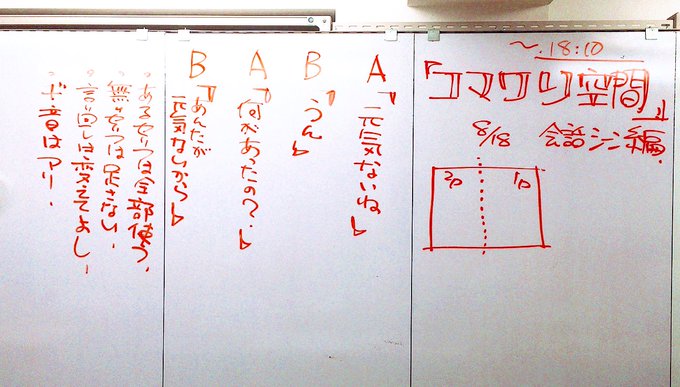 〜18:10
『コマワリ空間』
8/18 会話シーン編
1P
2P
A「元気ないね」
B「うん」
A「何があったの?」
B「あんたが
元気ないから」
・あるセリフは全部使う.
・無いセリフは足さない.
・言い回しは変えてよし.
・ボ音はアリ.